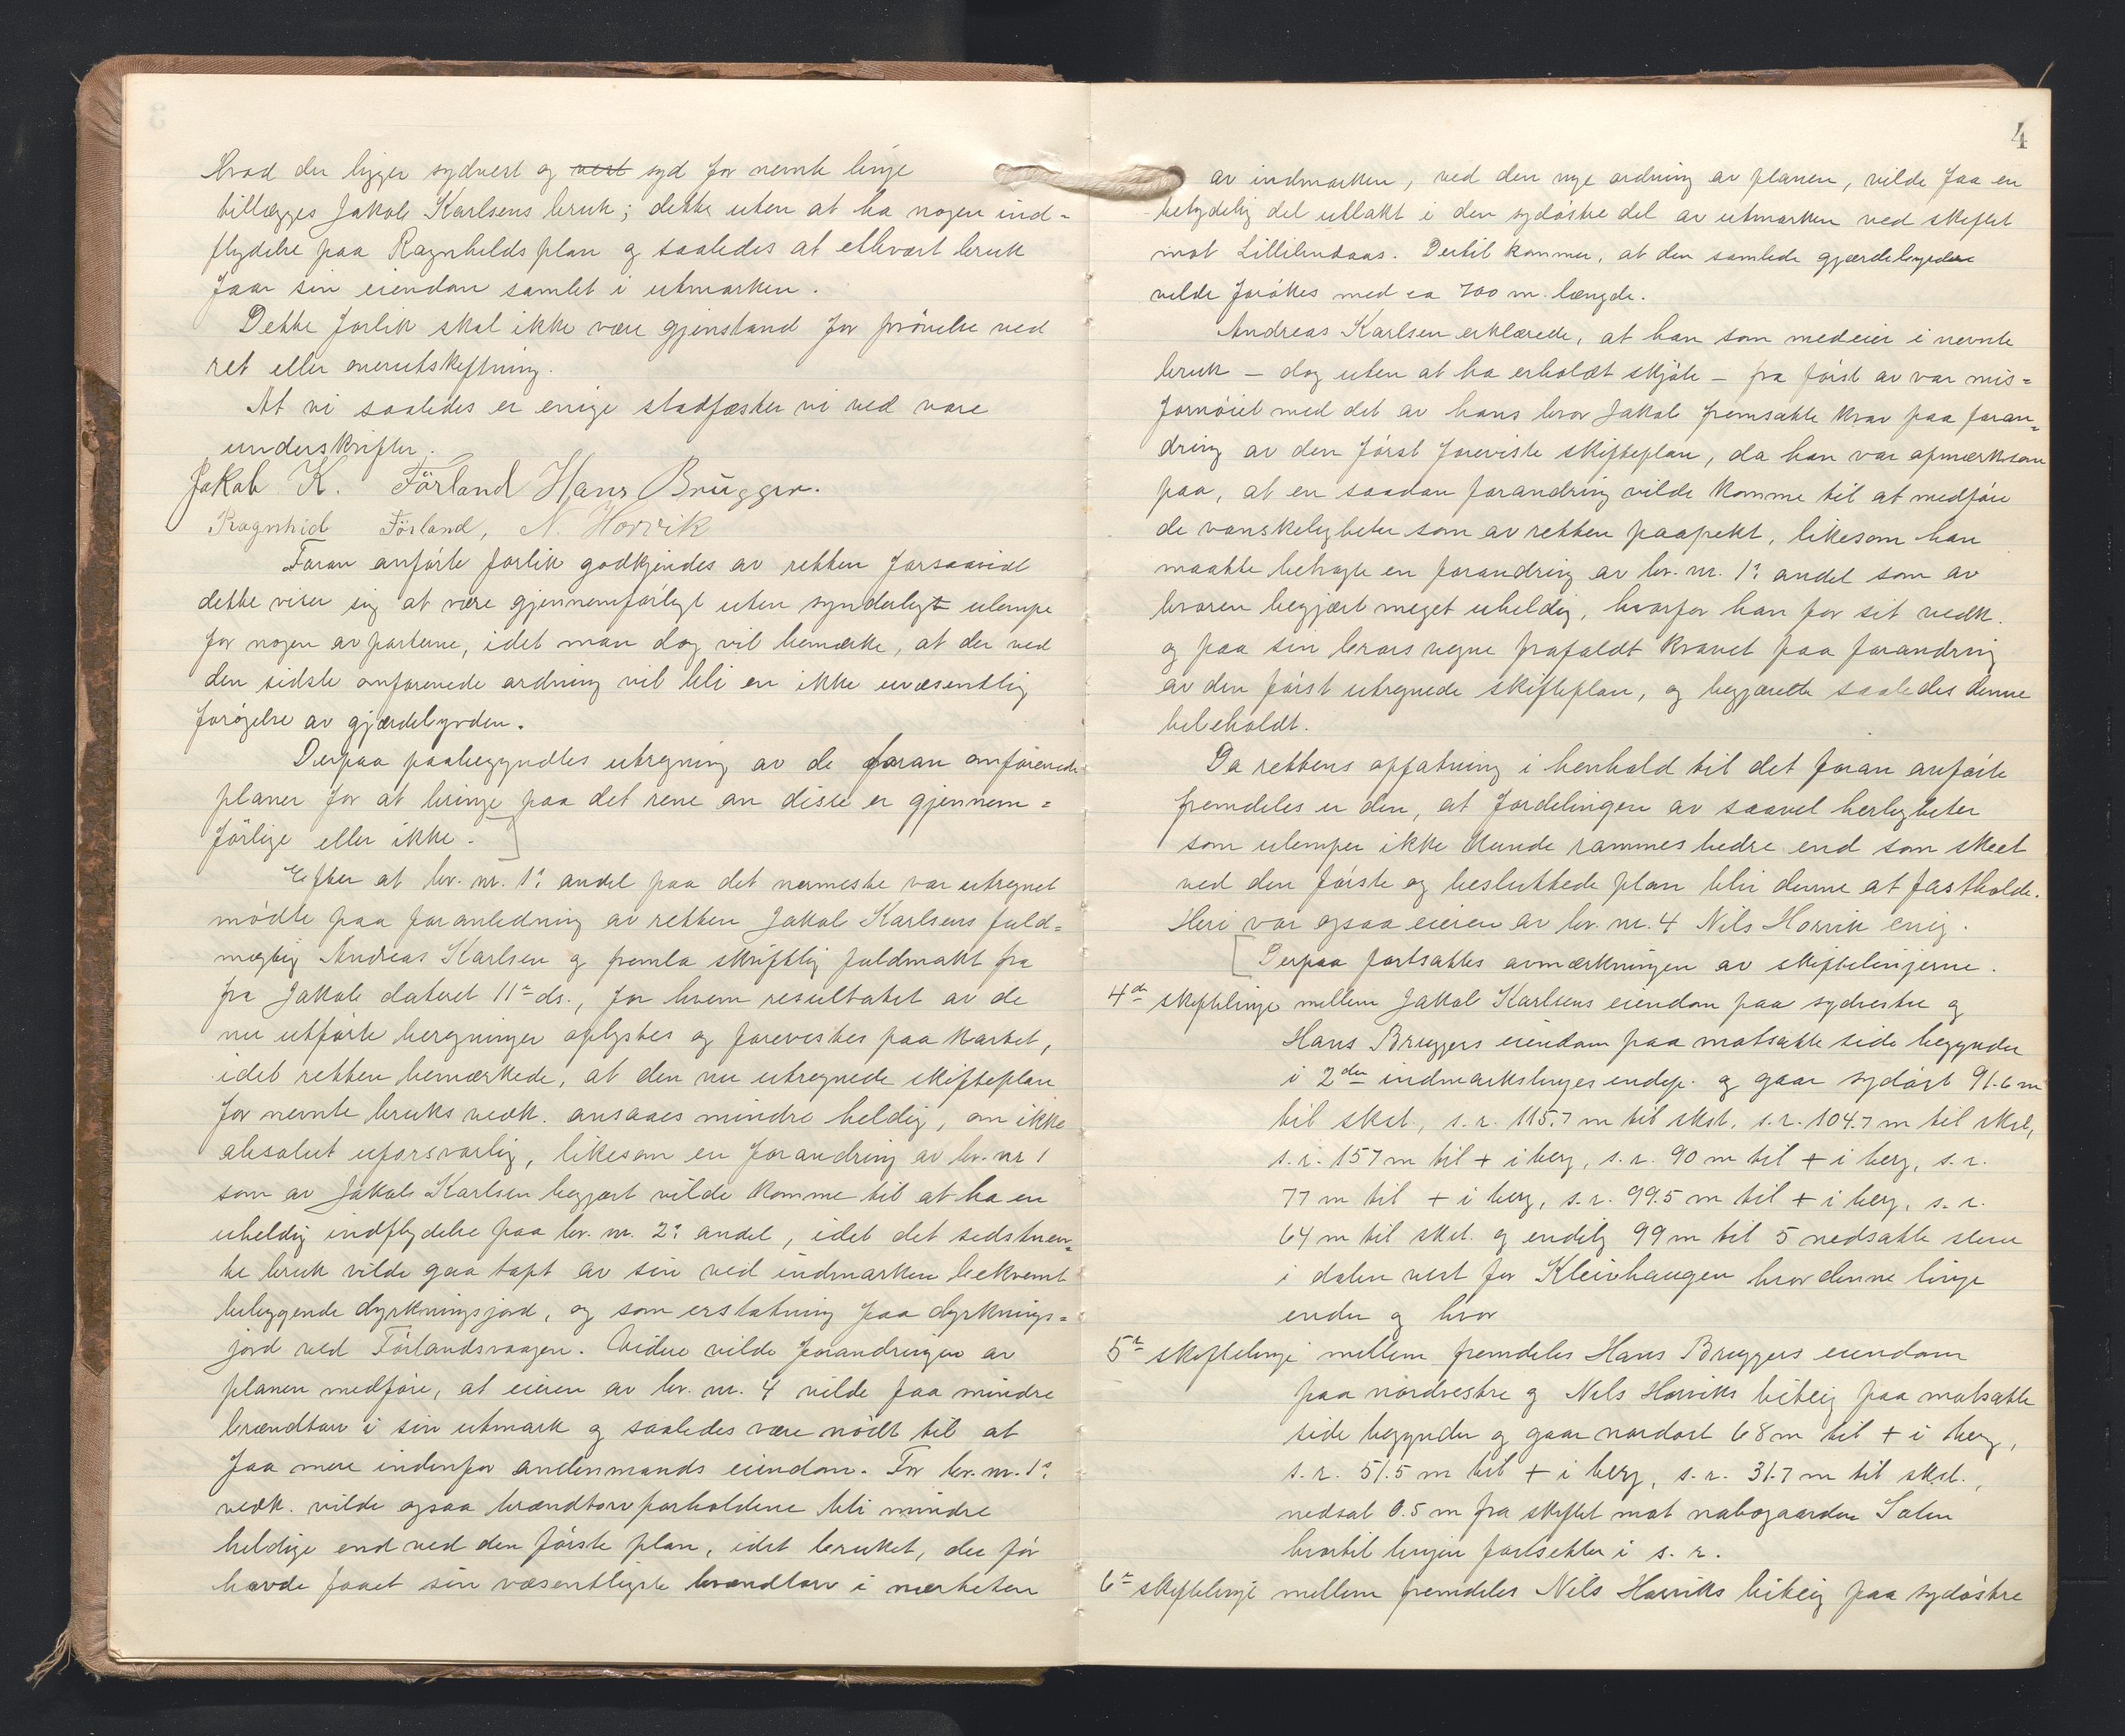 Hvad der ligger sydvest og vest syd for nevnte linje
tillægges Jakob Karlsens bruk; dette uten at ha nogen ind-
flydelse paa Ragnhilds plan og saaledes at ethvert bruk
faar sin eiendom samlet i utmarken.
Dette forlik skal ikke være gjenstand for prövelse ved
ret eller overutskiftning.
At vi saaledes er enige stadfæster vi ved vore
underskrifter.
Jakob K. Förland Hans Brügger.
Ragnhid Förland, N. Horvik
Foran anförte forlik godkjendes av retten forsaavidt
dette viser sig at være gjennemförligt uten synderligt ulempe
for nogen av parterne, idet man dog vil bemærke, at der ved
den sidste omforenede ordning vil bli en ikke uvæsentlig
forögelse av gjærdebyrden.
Derpaa paabegyndtes utregning av de foran omforenede
planer for at bringe paa det rene om disse er gjennem-
förlige eller ikke.
Efter at br. nr. 1s andel paa det nærmeste var utregnet
mödte paa foranledning av retten Jakob Karlsens fuld-
mægtig Andreas Karlsen og fremla skriftlig fuldmakt fra
fra Jakob dateret 11te ds., for hvem resultatet av de
nu utförte beregninger oplystes og forevistes paa kartet,
idet retten bemærkede, at den nu utregnede skifteplan
for nevnte bruks vedk. ansaaes mindre heldig, om ikke
absolut uforsvarlig, likesom en forandring av br. nr 1
som av Jakob Karlsen begjært vilde komme til at ha en
uheldig indflydelse paa br. nr. 2s andel, idet det sidstnæv-
te bruk vilde gaa tapt av sin ved indmarken bekvemt
beliggende dyrkningsjord, og som erstatning faa dyrknings-
jord ved Förlandsvaagen. Videre vilde forandringen av
planen medföre, at eieren av br. nr. 4 vilde faa mindre
brændtorv i sin utmark og saaledes være nödt til at
faa mere indenfor andenmands eiendom. For br. nr. 1s
vedk. vilde ogsaa brændtorvforholdene bli mindre
heldige end ved den förste plan, idet bruket, der för
havde faaet sin væsentligste brændtorv i nærheten
4
av indmarken, ved den nye ordning av planen, vilde faa en
betydelig del utlakt i den sydöstre del av utmarken ved skiftet
mot Lillilindaas. Dertil kommer, at den samlede gjærdebyrde
vilde forökes med ca 700 m. længde.
Andreas Karlsen erklærede, at han som medeier i nevnte
bruk – dog uten at ha erholdt skjöte – fra först av var mis-
fornöiet med det av hans bror Jakob fremsatte krav paa foran-
dring av den först foreviste skifteplan, da han var opmærksom
paa, at en saadan forandring vilde komme til at medföre
de vanskeligheter som av retten paapekt, likesom han
maatte betragte en forandring av br. nr. 1s andel som av
broren begjært meget uheldig, hvorfor han for sit vedk.
og paa sin brors vegne frafaldt kravet paa forandring
av den först utregnede skifteplan, og begjærte saaledes denne
bibeholdt.
Da rettens opfatning i henhold til det foran anförte
fremdeles er den, at fordelingen av saavel herligheter
som ulemper ikke kunde rammes bedre end som skeet
ved den förste og besluttede plan blir denne at fastholde.
Heri var ogsaa eieren av br. nr. 4 Nils Horvik enig.
Derpaa fortsattes avmærkningen av skiftelinjerne.
4de skiftelinje mellem Jakob Karlsens eiendom paa sydvestre og
Hans Brüggers eiendom paa motsatte side begynder
i 2den indmarkslinjes endep. og gaar sydöst 91.6 m
til skst., s. r. 115.7 m til skst. s. r. 104.7 m til skst,
s. r. 157 m til + i berg, s. r. 90 m til + i berg, s. r.
77 m til + i berg, s. r. 99.5 m til + i berg, s. r.
64 m til skst. og endelig 99 m til 5 nedsatte stene
i dalen vest for Kleivhaugen hvor denne linje
ender og hvor
5te skiftelinje mellem fremdeles Hans Brüggers eiendom
paa nordvestre og Nils Horviks teig paa motsatte
side begynder og gaar nordost 68 m til + i berg,
s. r. 51.5 m til + i berg, s. r. 31.7 m til skst.,
nedsat 0.5 m fra skiftet mot nabogaarden
hvortil linjen fortsetter i s. r.
6te skiftelinje mellem fremdeles Nils Horviks teig paa sydöstre